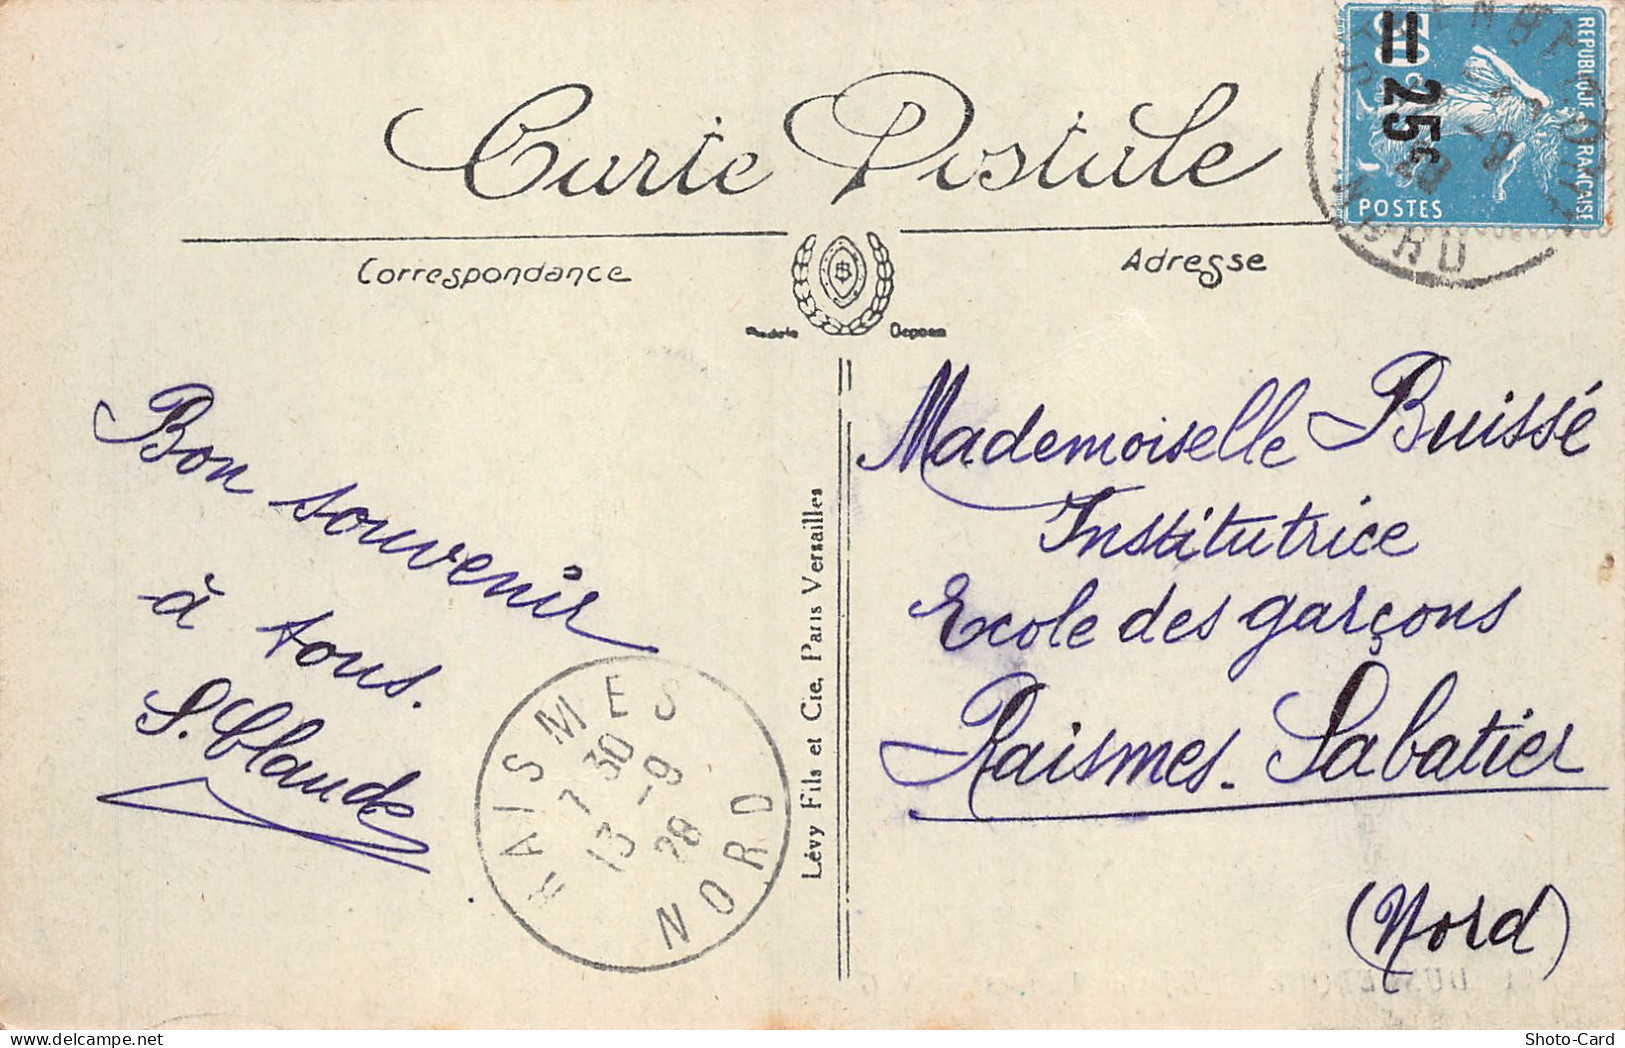 Carte Postale
Correspondance
Adresse
REPUBLIQUE FRANÇAISE
= 25c
POSTES
Bon souvenir
à tous.
S. Claude
Mademoiselle Buissé
Institutrice
Ecole des garçons
Raismes. Sabatier
(Nord)
RAISMES
7 30
13 -9
28
NORD
Lévy Fils et Cie, Paris Versailles
Shoto-Card